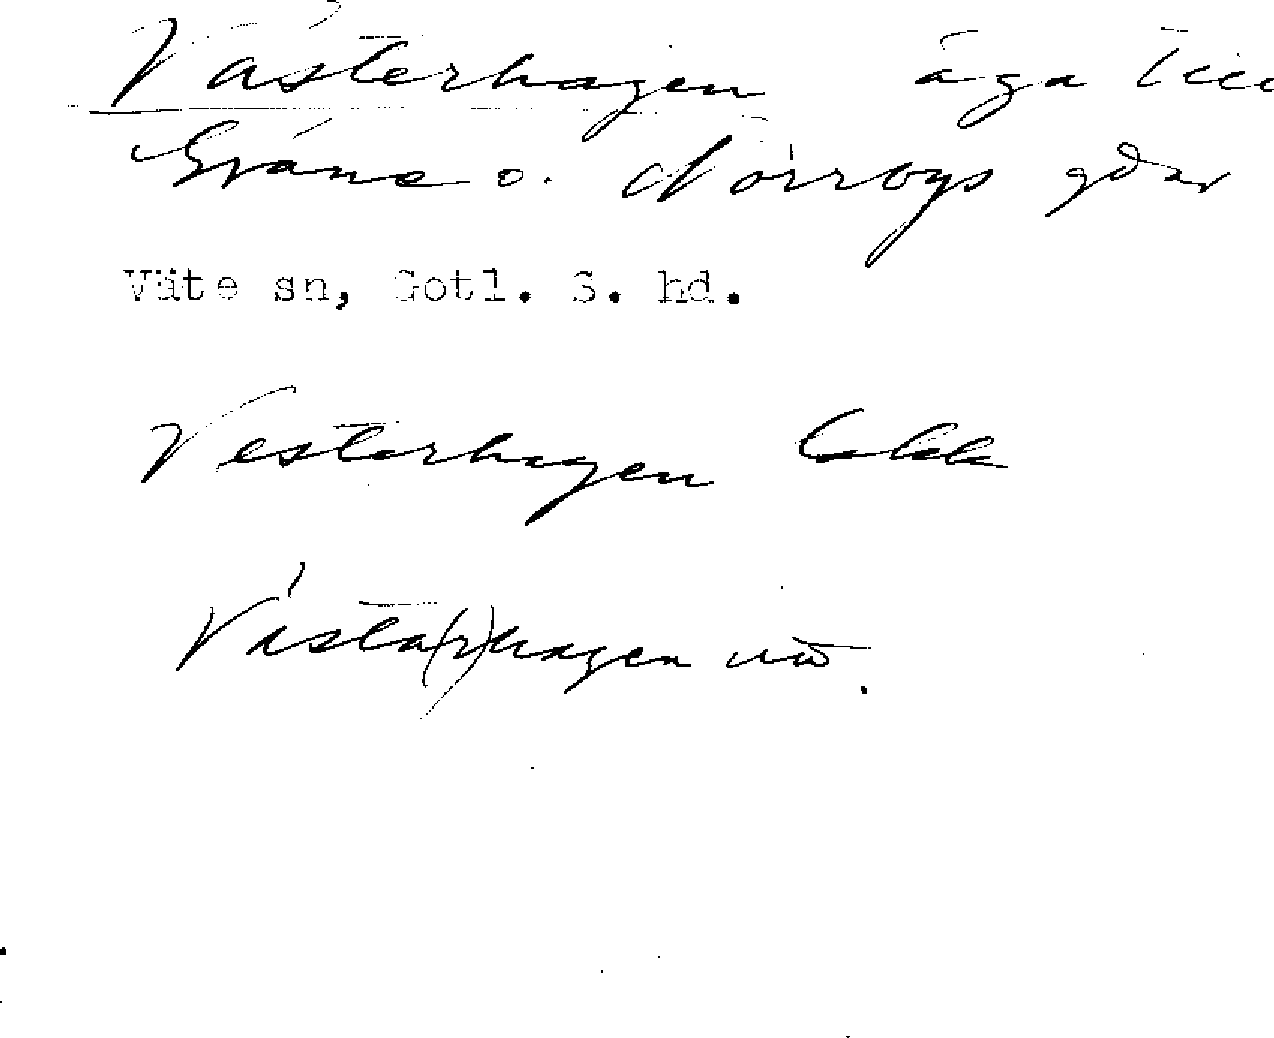 Västerhagen äga till
Gräne o. Norrbys gdar
Väte sn, Gotl. S. hd.
Vesterhagen
Västa(r)hagen